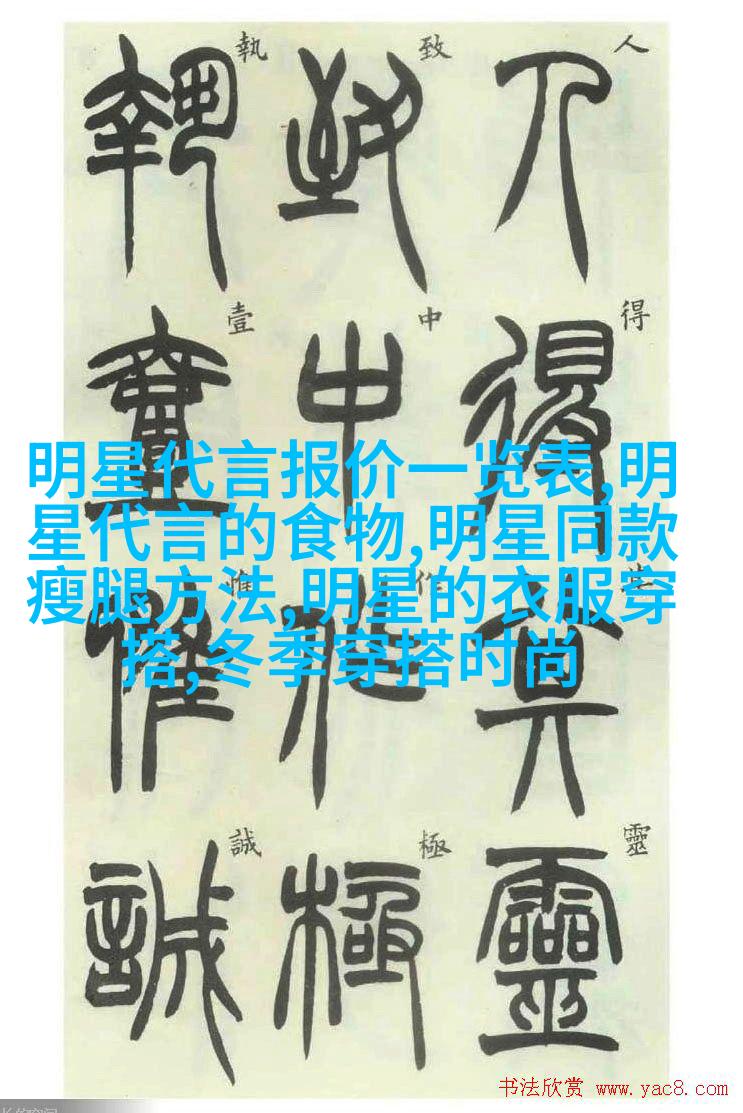 人得其靈
人得靈
致中作極
致中作極
執壹惟誠
執壹惟誠
明星代言报价一览表,明
星代言的食物,明星同款
瘦腿方法,明星的衣服穿
搭,冬季穿搭时尚
书法欣赏 www.yac8.com